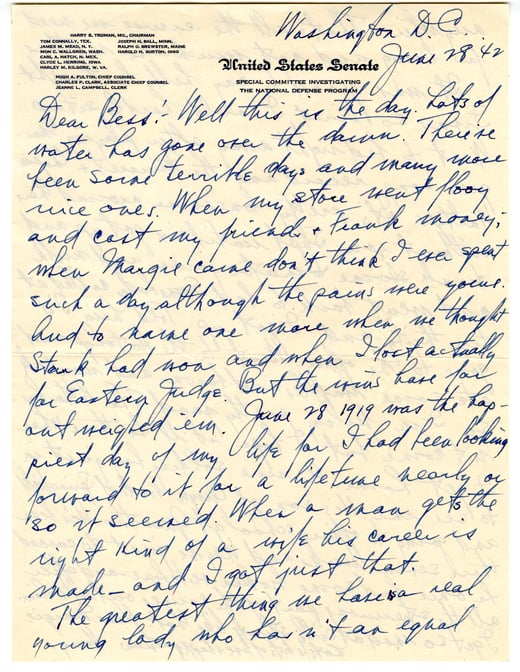 HARRY S. TRUMAN, MO., CHAIRMAN
TOM CONNALLY, TEX. JOSEPH H. BALL, MINN.
JAMES M. MEAD, N. Y. RALPH O. BREWSTER, MAINE
MON C. WALLGREN, WASH. HAROLD H. BURTON, OHIO
CARL A. HATCH, N. MEX.
CLYDE L. HERRING, IOWA
HARLEY M. KILGORE, W. VA.
HUGH A. FULTON, CHIEF COUNSEL
CHARLES P. CLARK, ASSOCIATE CHIEF COUNSEL
JEANNE L. CAMPBELL, CLERK
United States Senate
SPECIAL COMMITTEE INVESTIGATING
THE NATIONAL DEFENSE PROGRAM
Washington D.C.
June 28 42
Dear Bess:- Well this is the day. Lots of
water has gone over the dam. There've
been some terrible days and many more
nice ones. When my store went flooy
and cost my friends & Frank money;
when Margie came don't think I ever spent
such a day although the pains were yours.
And to name one more when we thought
Stark had won and when I lost actually
for Eastern Judge. But the wins have far
outweighed em. June 28 1919 was the hap-
piest day of my life for I had been looking
forward to it for a lifetime nearly or
so it seemed. When a man gets the
right kind of a wife his career is
made - and I got just that.
The greatest thing we have is a real
young lady who hasn't an equal